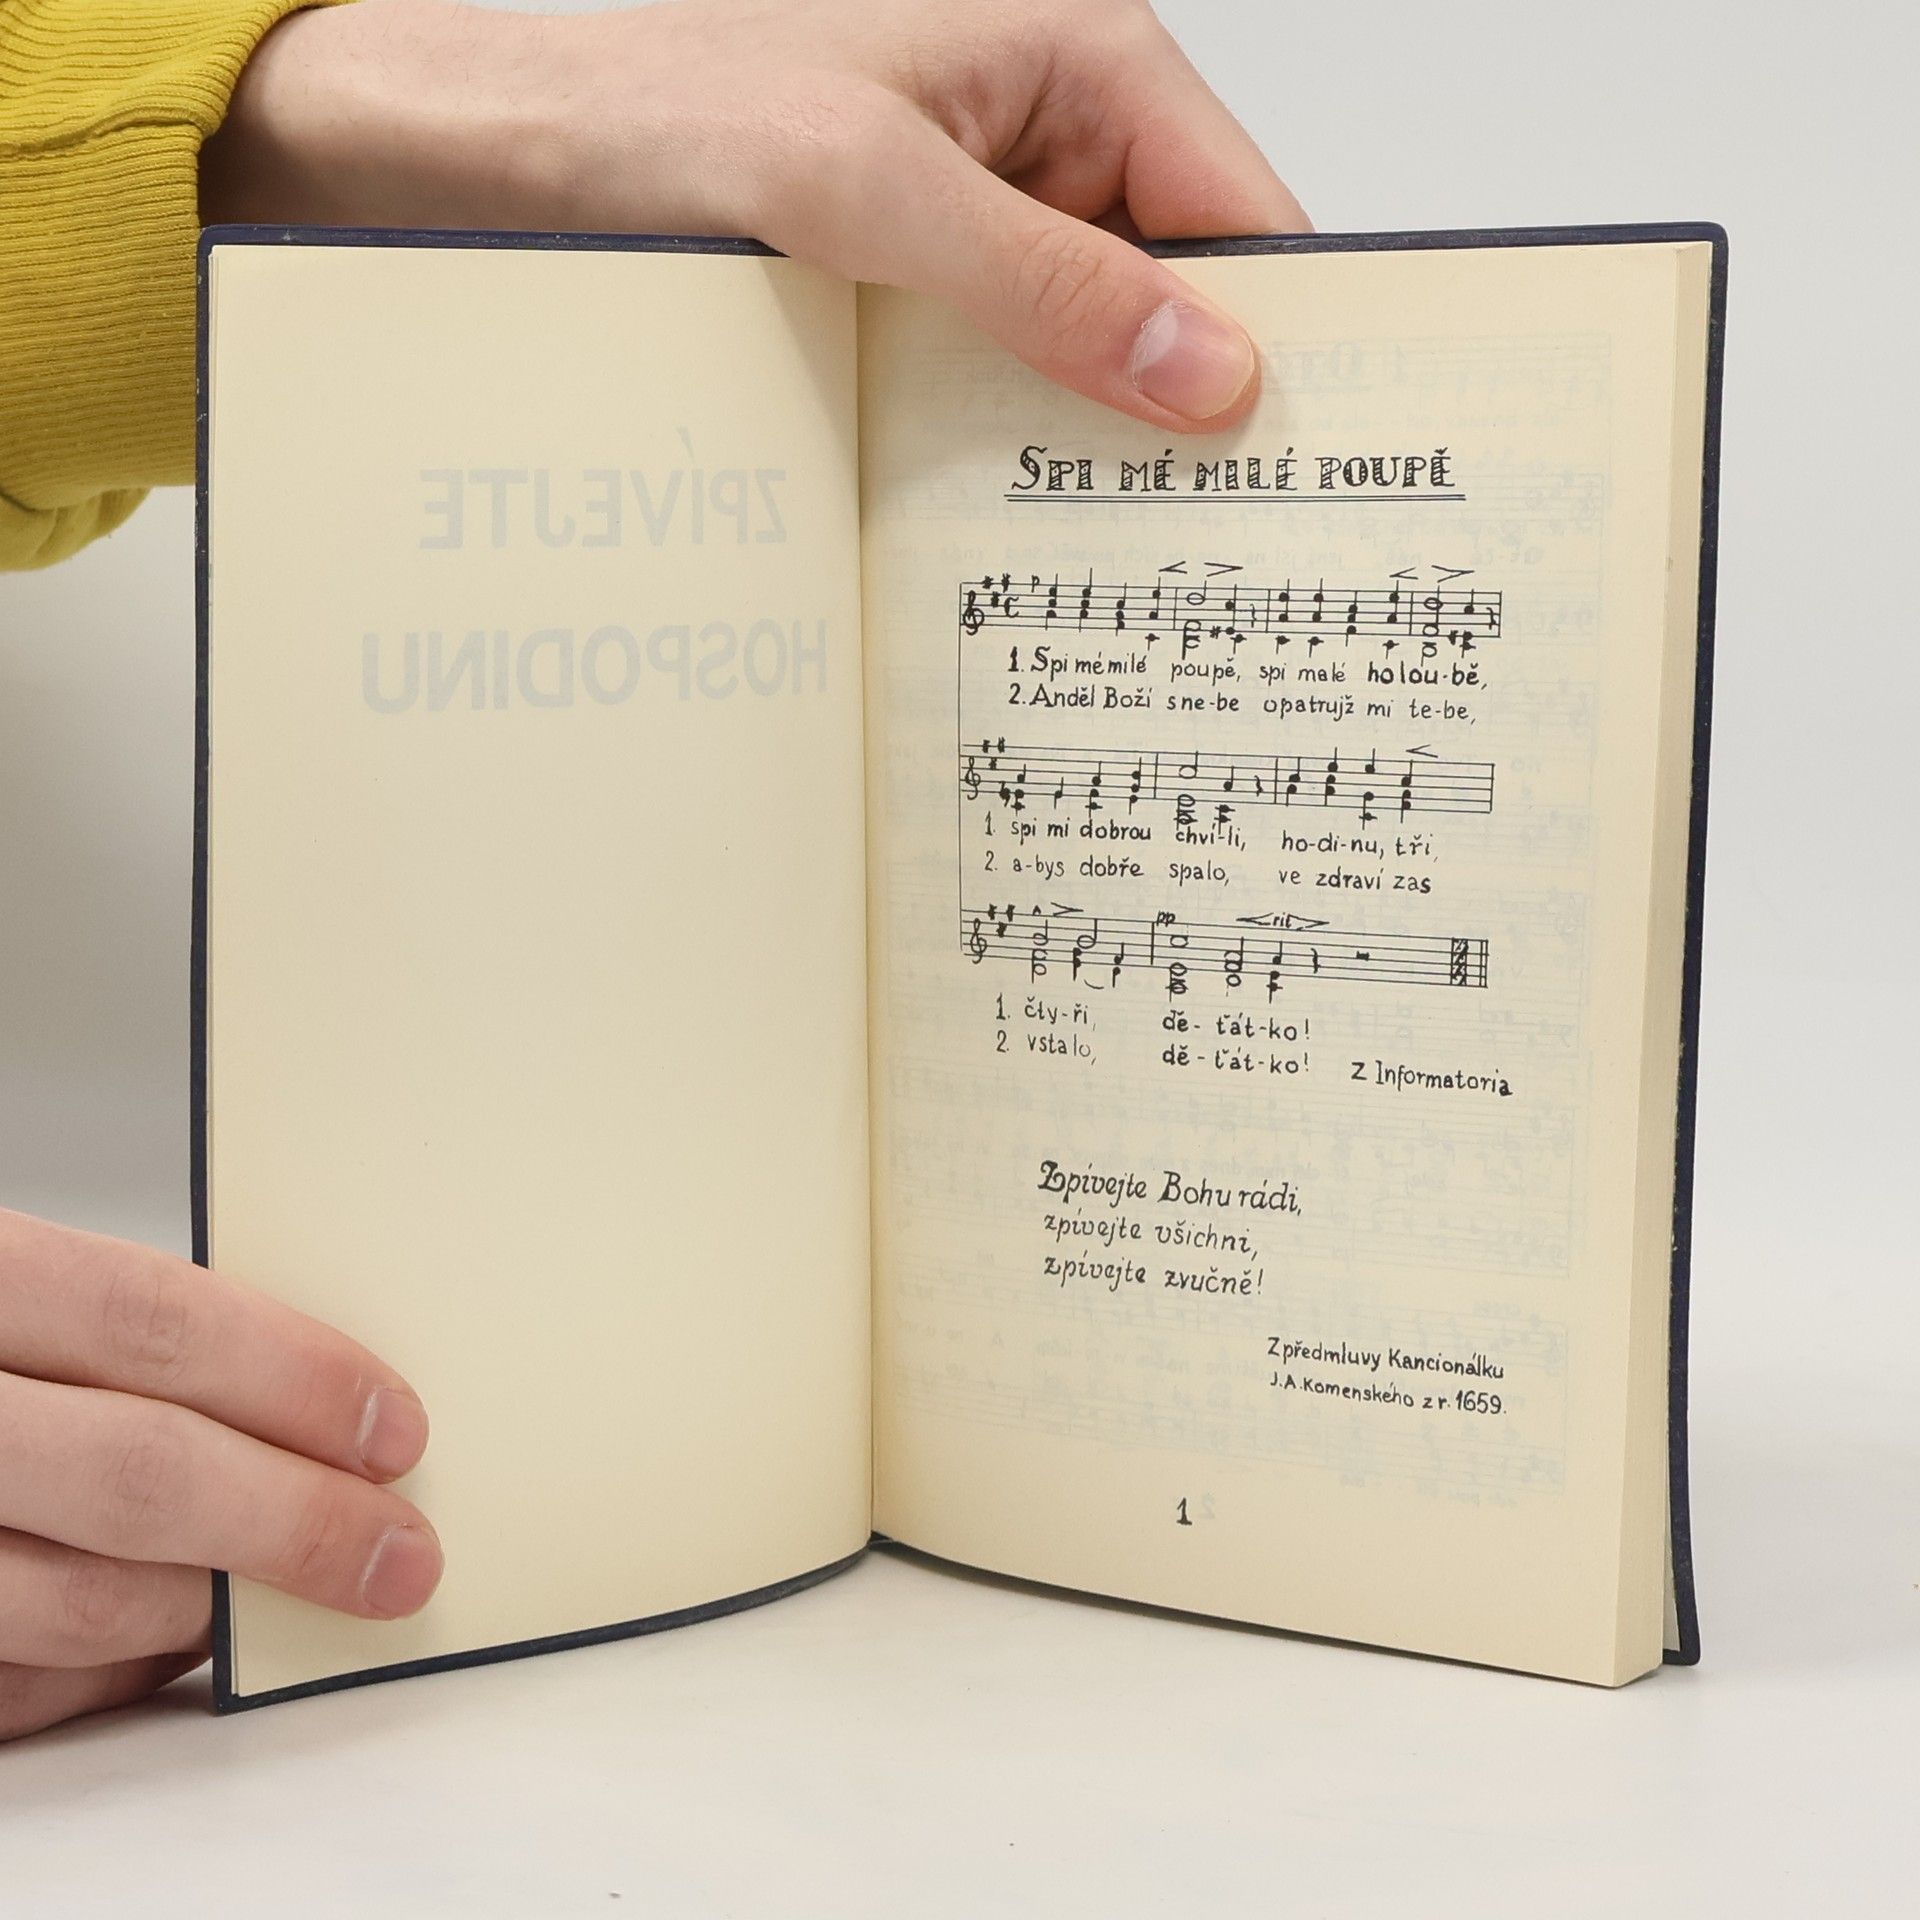 ZPÍVEJTE
HOSPODINU
SPI MÉ MILÉ POUPĚ
p
1. Spi mé milé poupě, spi malé holou-bě,
2. Anděl Boží s ne-be opatrujž mi te-be,
1. spi mi dobrou chví-li, ho-di-nu, tři,
2. a-bys dobře spalo, ve zdraví zas
pp rit
1. čty-ři, dě-ťát-ko!
2. vstalo, dě-ťát-ko!
Z Informatoria
Zpívejte Bohu rádi,
zpívejte všichni,
zpívejte zvučně!
Z předmluvy Kancionálku
J.A.Komenského z r. 1659.
1